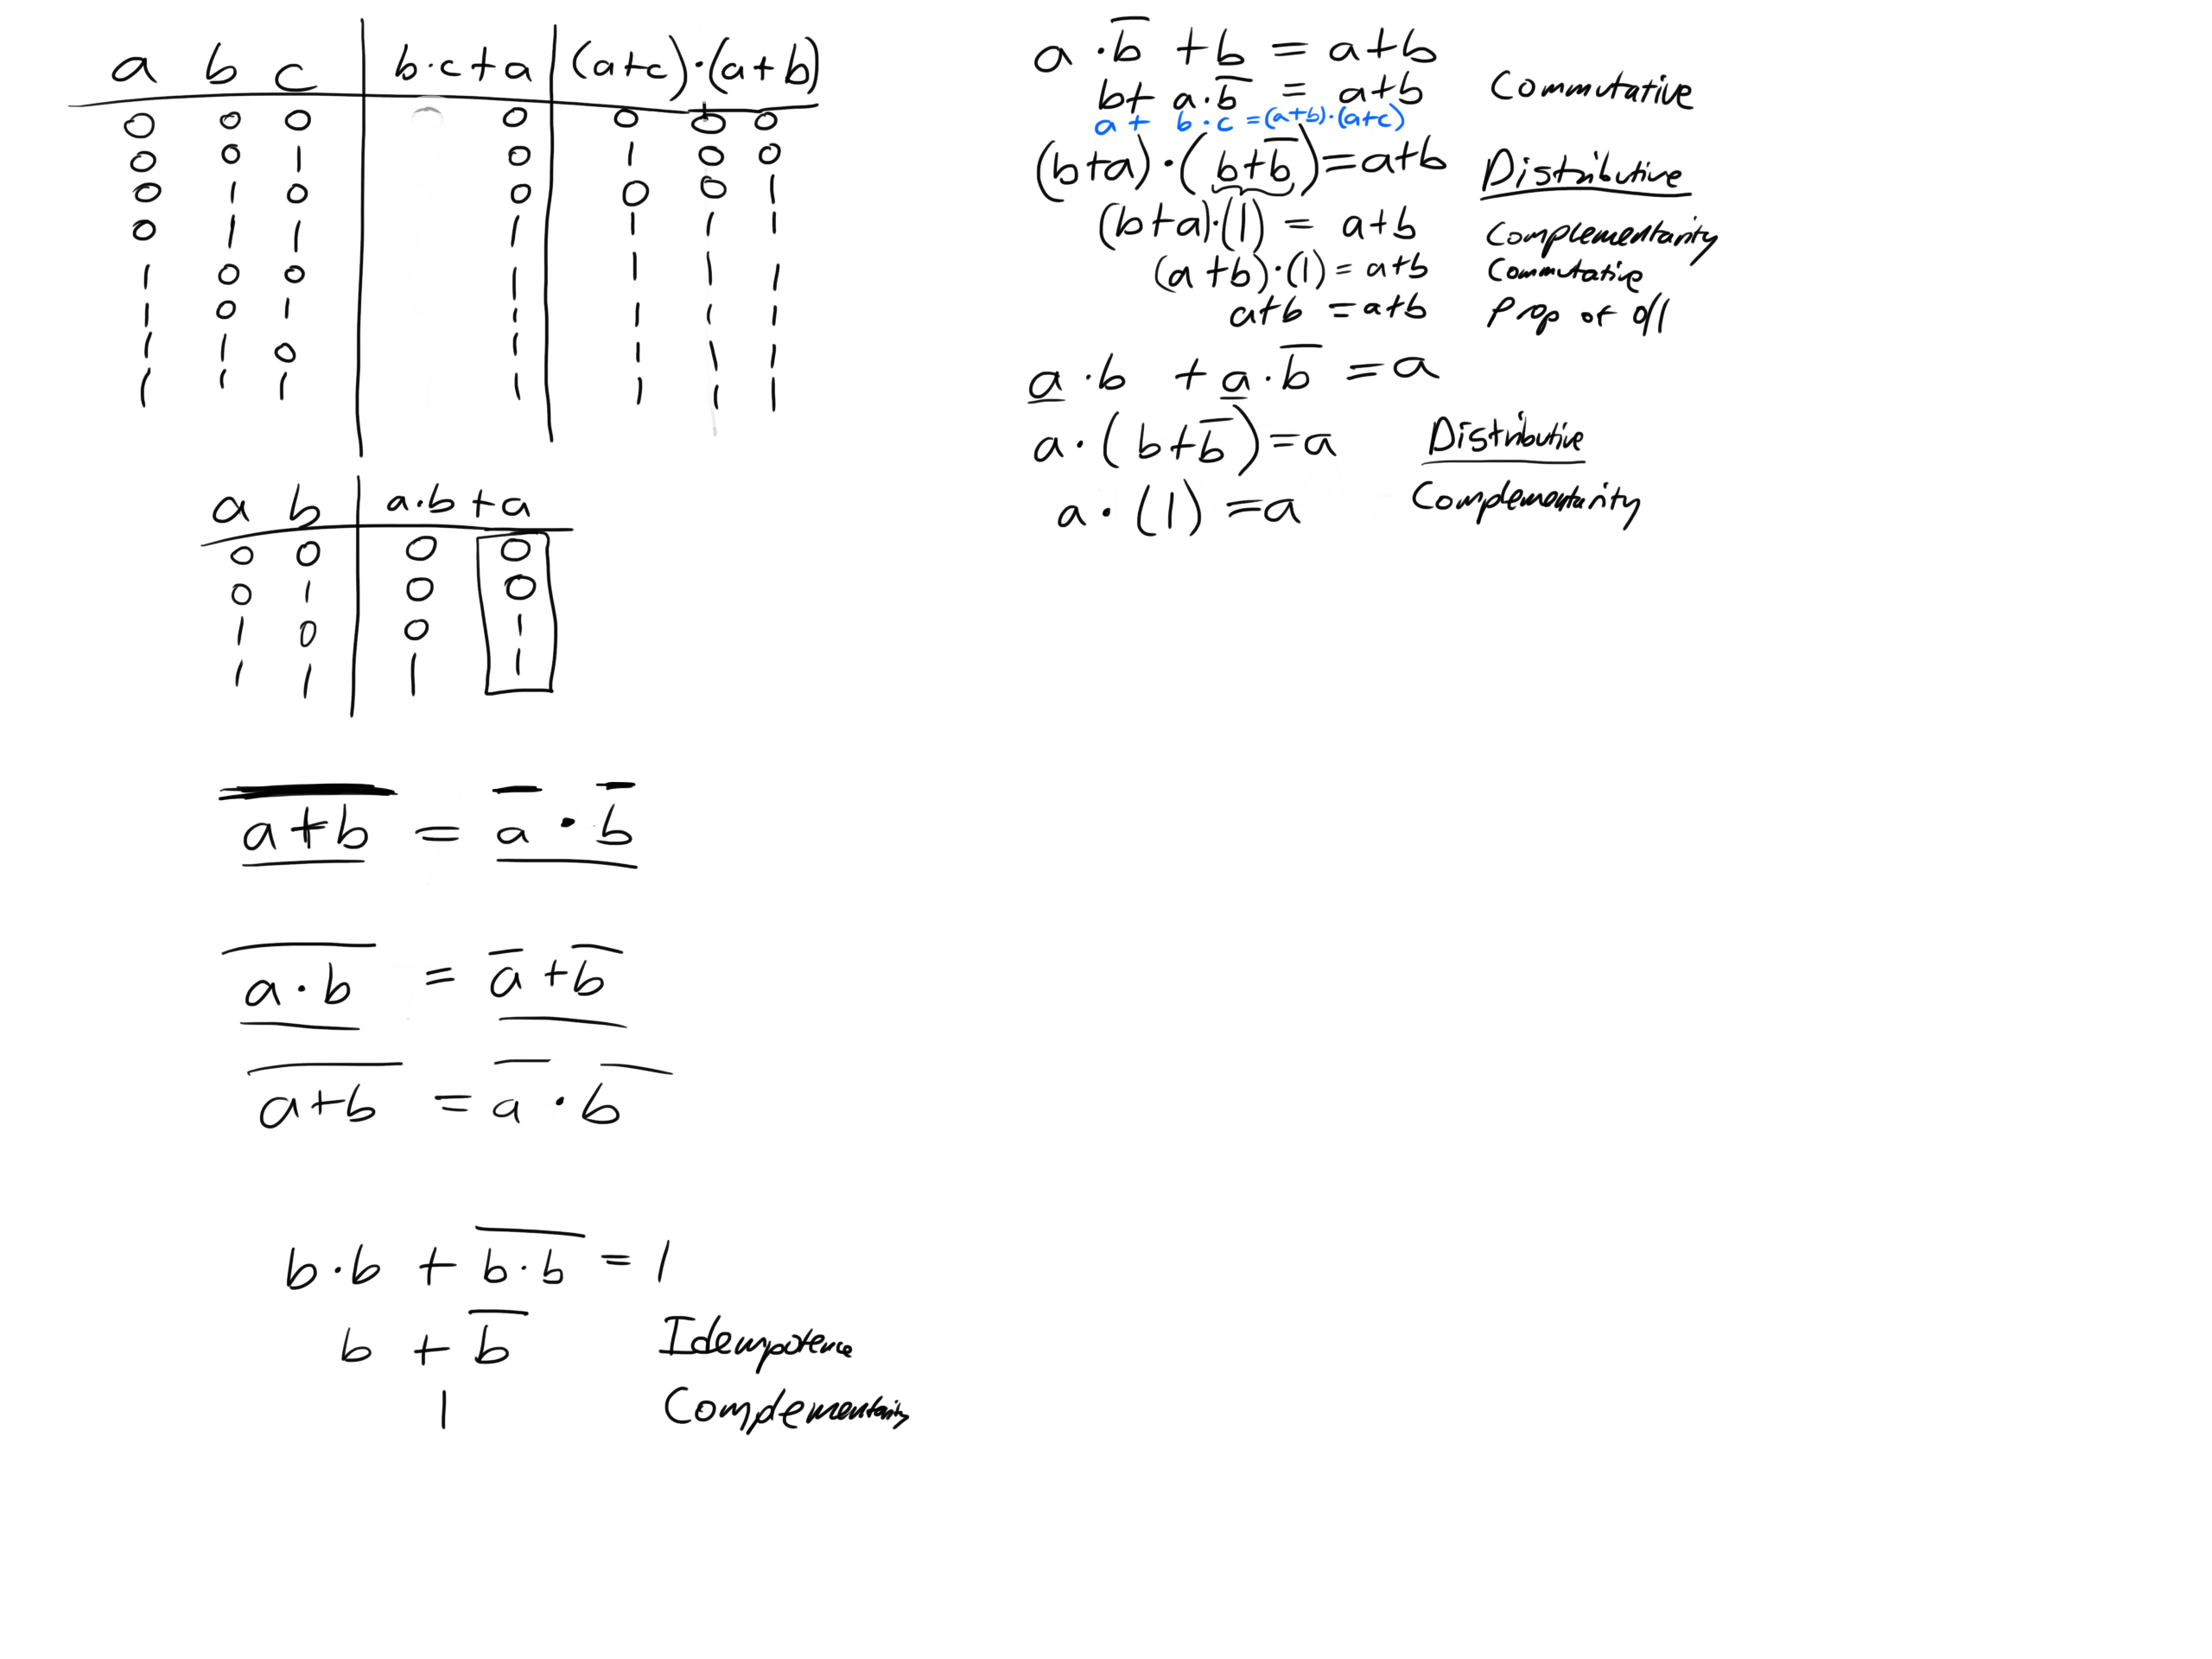 a b c b·c+a (a+c)·(a+b)
0 0 0 0 0 0 0
0 0 1 0 1 0 0
0 1 0 0 0 0 1
0 1 1 1 1 1 1
1 0 0 1 1 1 1
1 0 1 1 1 1 1
1 1 0 1 1 1 1
1 1 1 1 1 1 1
a b a·b+a
0 0 0 0
0 1 0 0
1 0 0 1
1 1 1 1
a̅+̅b̅ = a̅ · b̅
a̅·̅b̅ = a̅ + b̅
a̅+̅b̅ = a̅ · b̅
b·b + b̅·̅b̅ = 1
b + b̅ Idempotence
1 Complementarity
a · b̅ + b = a+b
b+ a·b̅ = a+b Commutative
a + b·c = (a+b)·(a+c)
(b+a)·(b+b̅)=a+b Distributive
(b+a)·(1) = a+b Complementarity
(a+b)·(1) = a+b Commutative
a+b = a+b Prop of 0/1
a·b + a·b̅ = a
a·(b+b̅)=a Distributive
a·(1)=a Complementarity